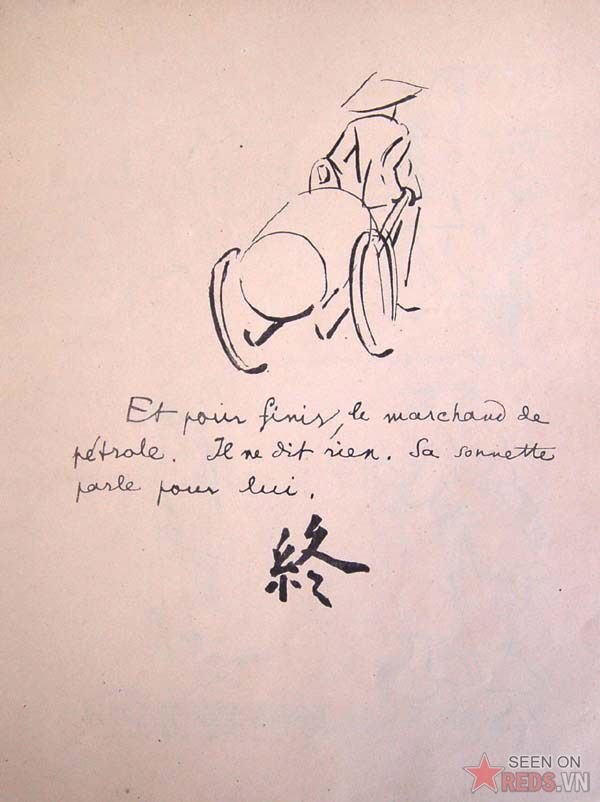 Et pour finir, le marchand de
pétrole. Il ne dit rien. Sa sonnette
parle pour lui.
終
SEEN ON
REDS.VN